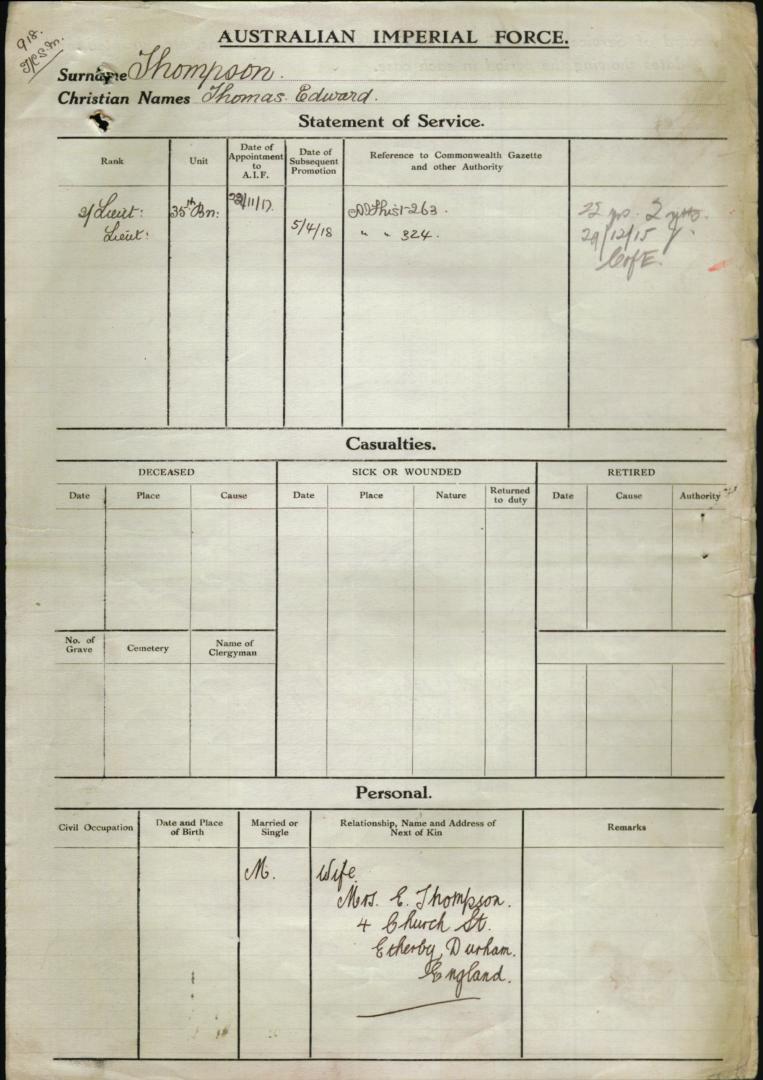 918.
AUSTRALIAN IMPERIAL FORCE.
Surname Thompson.
Christian Names Thomas Edward.
Statement of Service.
Rank
Unit
Date of Appointment to A.I.F.
Date of Subsequent Promotion
Reference to Commonwealth Gazette and other Authority
2/Lieut: 35th Bn: /11/17. 263.
Lieut: 5/4/18 " " 324.
22 yrs. 2
29/12/15
CofE.
Casualties.
DECEASED
SICK OR WOUNDED
RETIRED
Date Place Cause
Date Place Nature Returned to duty
Date Cause Authority
No. of Grave
Cemetery
Name of Clergyman
Personal.
Civil Occupation
Date and Place of Birth
Married or Single
Relationship, Name and Address of Next of Kin
Remarks
M. Wife.
Mrs. E. Thompson.
4 Church St.
Etherby, Durham.
England.